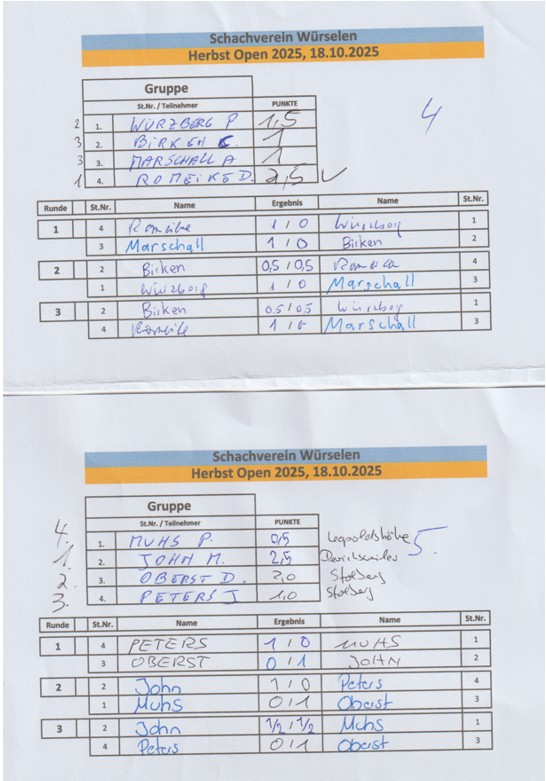 Schachverein Würselen
Herbst Open 2025, 18.10.2025
Gruppe
St.Nr. / Teilnehmer PUNKTE
4
2 1. WÜRZBERG P 1,5
3 2. BIRKEN C. 1
3 3. MARSCHALL A 1
1 4. ROMEIKE D. 2,5 ✓
Runde St.Nr. Name Ergebnis Name St.Nr.
1 4 Romeike 1 / 0 Würzberg 1
3 Marschall 1 / 0 Birken 2
2 2 Birken 0,5 / 0,5 Romeike 4
1 Würzberg 1 / 0 Marschall 3
3 2 Birken 0,5 / 0,5 Würzberg 1
4 Romeike 1 / 0 Marschall 3
Schachverein Würselen
Herbst Open 2025, 18.10.2025
Gruppe
St.Nr. / Teilnehmer PUNKTE
4. 1. MUHS P. 0,5 Leopoldshöhe
5.
1. 2. JOHN M. 2,5
2. 3. OBERST D. 2,0 Stolberg
3. 4. PETERS J 1,0 Stolberg
Runde St.Nr. Name Ergebnis Name St.Nr.
1 4 PETERS 1 / 0 MUHS 1
3 OBERST 0 / 1 JOHN 2
2 2 John 1 / 0 Peters 4
1 Muhs 0 / 1 Oberst 3
3 2 John 1/2 / 1/2 Muhs 1
4 Peters 0 / 1 Oberst 3